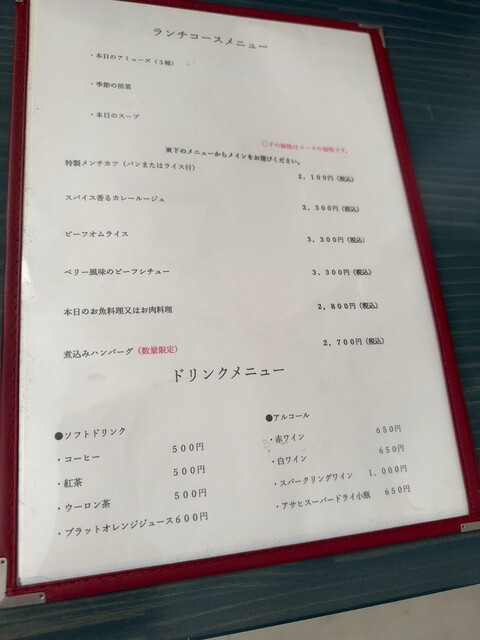 ランチコースメニュー
・本日のアミューズ（３種）
・季節の前菜
・本日のスープ
下の価格はコースの価格です。
以下のメニューからメインをお選びください。
特製メンチカツ（パンまたはライス付） ２，１９５円（税込）
スパイス香るカレールージュ ３，３００円（税込）
ビーフオムライス ３，３００円（税込）
ベリー風味のビーフシチュー ３，３００円（税込）
本日のお魚料理又はお肉料理 ２，８００円（税込）
煮込みハンバーグ（数量限定） ２，７００円（税込）
ドリンクメニュー
●ソフトドリンク
・コーヒー ５００円
・紅茶 ５００円
・ウーロン茶 ５００円
・ブラットオレンジジュース６００円
●アルコール
・赤ワイン ６５０円
・白ワイン ６５０円
・スパークリングワイン １，０００円
・アサヒスーパードライ小瓶 ６５０円